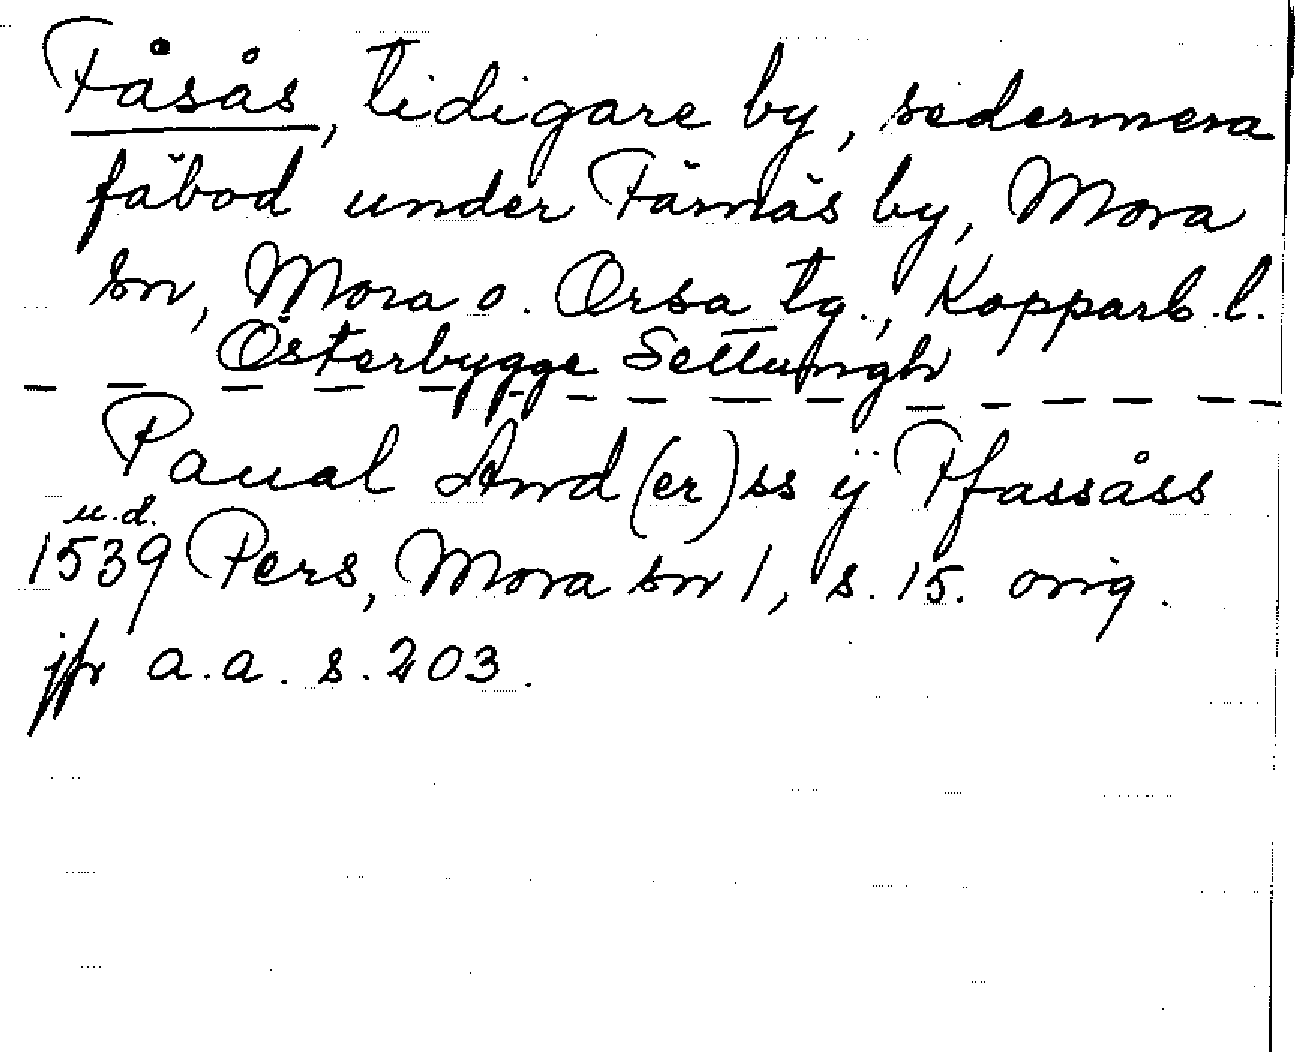 Fåsås, tidigare by, sedermera
fäbod under Färnäs by, Mora
sn, Mora o. Orsa tg., Kopparb. l.
Österbygge Settungh
Paual And(er)ss ÿ Pfassåss
u.d.
1539 Pers, Mora sn 1, s. 15. orig.
jfr a.a. s. 203.